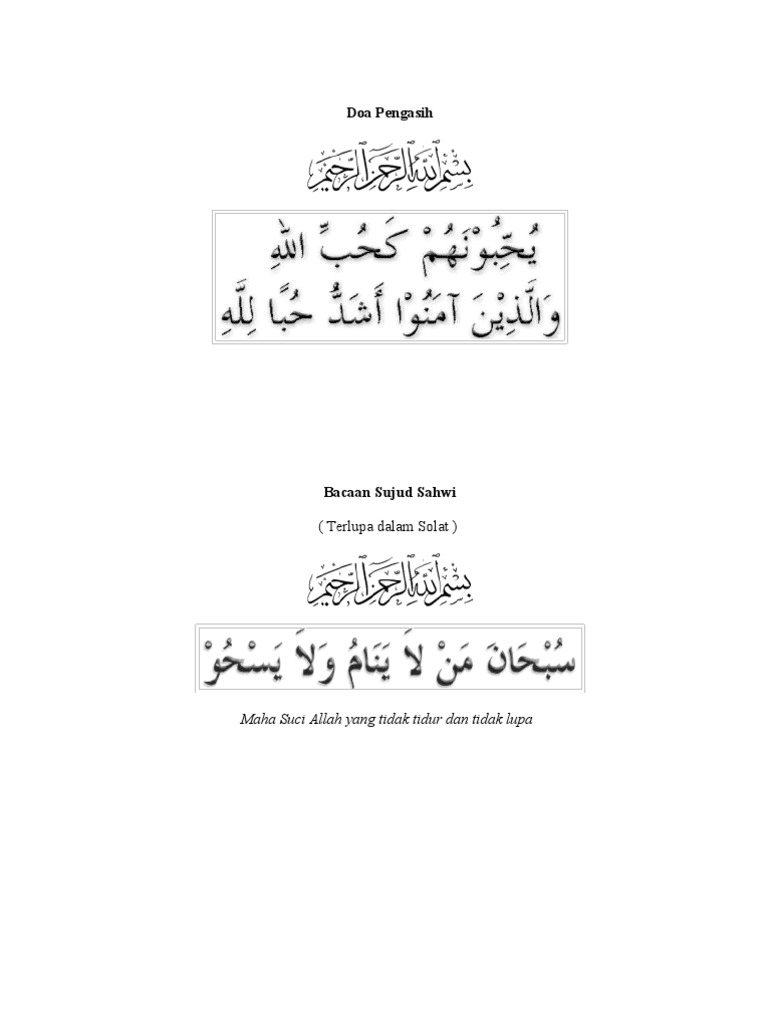 Doa Pengasih
بِسْمِ اللهِ الرَّحْمٰنِ الرَّحِيْمِ
يُحِّبُوْنَهُمْ كَحُبِّ اللهِ
وَالَّذِيْنَ آمَنُوْا أَشَدُّ حُبًا لِلَّهِ
Bacaan Sujud Sahwi
( Terlupa dalam Solat )
بِسْمِ اللهِ الرَّحْمٰنِ الرَّحِيْمِ
سُبْحَانَ مَنْ لاَ يَنَامُ وَلاَ يَسْحُوْ
Maha Suci Allah yang tidak tidur dan tidak lupa